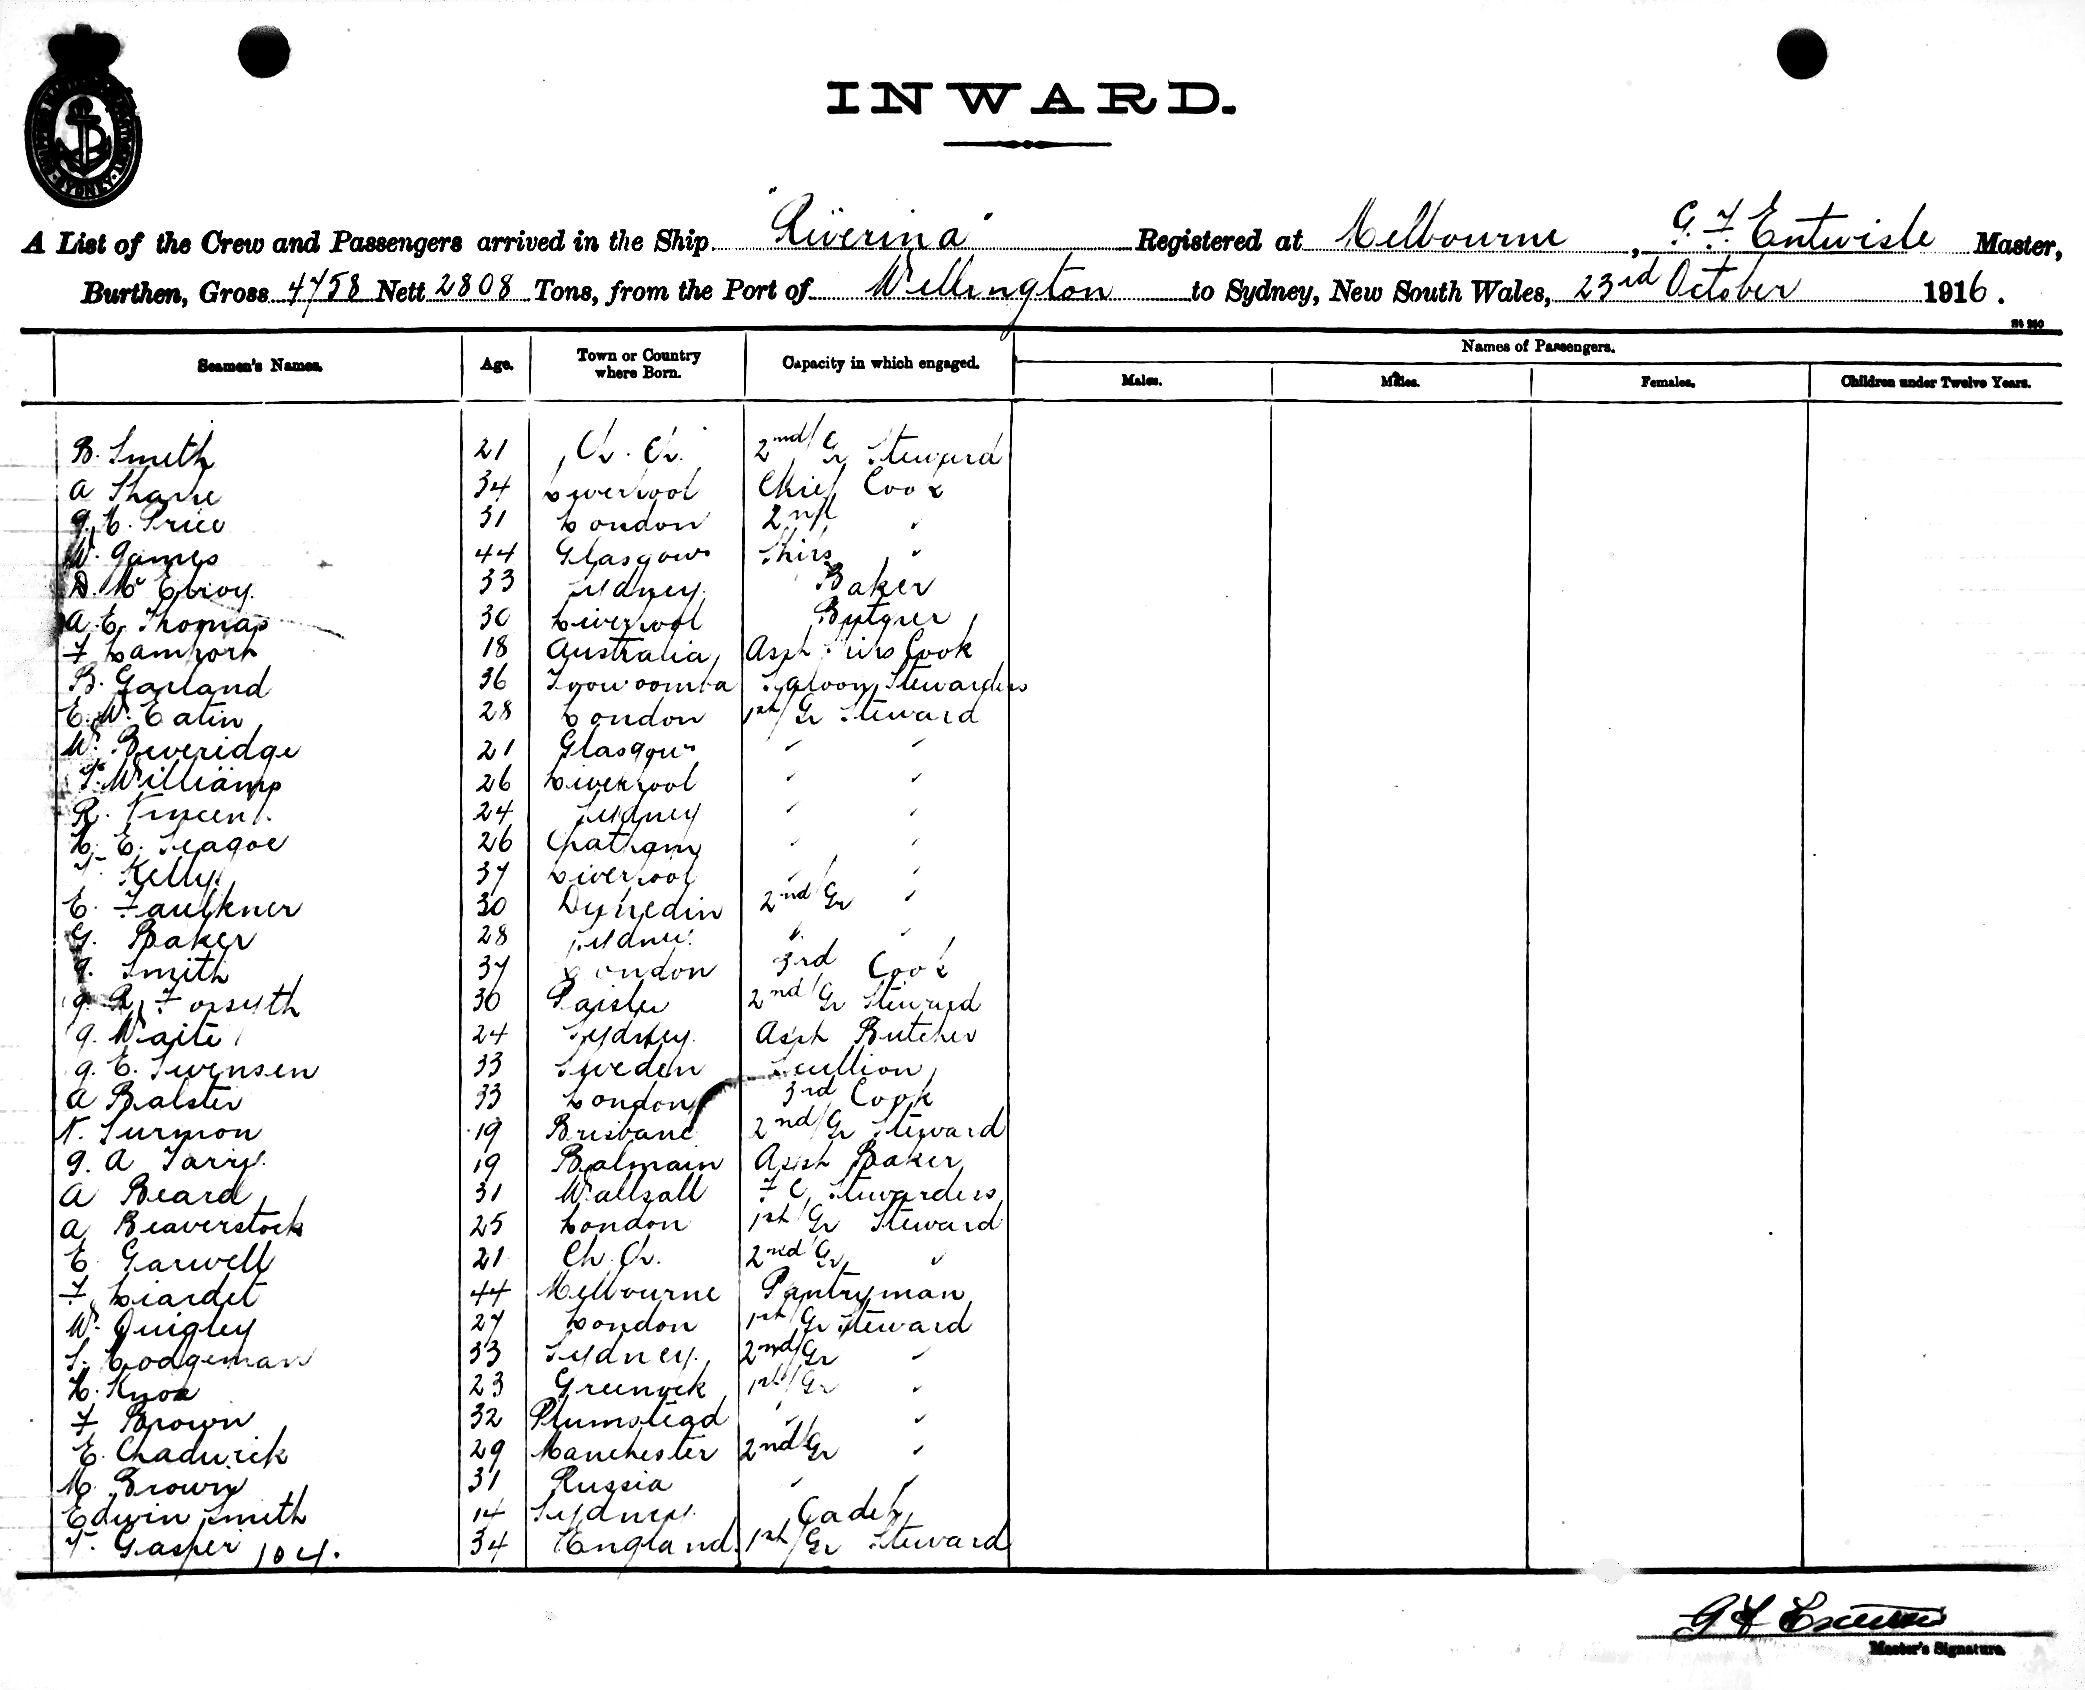 INWARD.
A List of the Crew and Passengers arrived in the Ship "Riverina" Registered at Melbourne, G. F. Entwisle Master,
Burthen, Gross 4758 Nett 2808 Tons, from the Port of Wellington to Sydney, New South Wales, 23rd October 1916.
Seamen's Names. Age. Town or Country where Born. Capacity in which engaged. Names of Passengers.
Males. Males. Females. Children under Twelve Years.
B. Smith 21 Ch. Ch. 2nd/Gr Steward
A Sharpe 34 Liverpool Chief Cook
G. H. Price 31 London 2nd "
W. James 44 Glasgow Ships "
D. McElroy 33 Sydney Baker
A. E. Thomas 30 Liverpool Butcher
F Lamport 18 Australia Asst Ships Cook
B. Garland 36 Toowoomba Saloon Stewardess
E. W. Eatin 28 London 1st/Gr Steward
W. Beveridge 21 Glasgow " "
T. Williams 26 Liverpool " "
R. Vincent 24 Sydney " "
H. E. Seagoe 26 Chatham " "
T. Kelly 37 Liverpool " "
E. Faulkner 30 Dunedin 2nd/Gr "
G. Baker 28 Sydney " "
J. Smith 37 London 3rd Cook
J. R. Forsyth 30 Paisley 2nd/Gr Steward
J. Waite 24 Sydney Asst Butcher
J. E. Swensen 33 Sweden Scullion
A Balster 33 London 3rd Cook
N. Surmon 19 Brisbane 2nd/Gr Steward
G. A Tarry 19 Balmain Asst Baker
A Beard 31 Wallsall F C Stewardess
A Beaverstock 25 London 1st/Gr Steward
E Garwell 21 Ch. Ch. 2nd Gr "
F. Liardet 44 Melbourne Pantryman
W. Quigley 27 London 1st/Gr Steward
S. Hodgeman 33 Sydney 2nd/Gr "
H. Knox 23 Greenock 1st/Gr "
F Brown 32 Plumstead " "
E. Chadwick 29 Manchester 2nd/Gr "
M. Brown 31 Russia " "
Edwin Smith 14 Sydney Cadet
T. Gasper 104. 34 England. 1st/Gr Steward
Master's Signature.